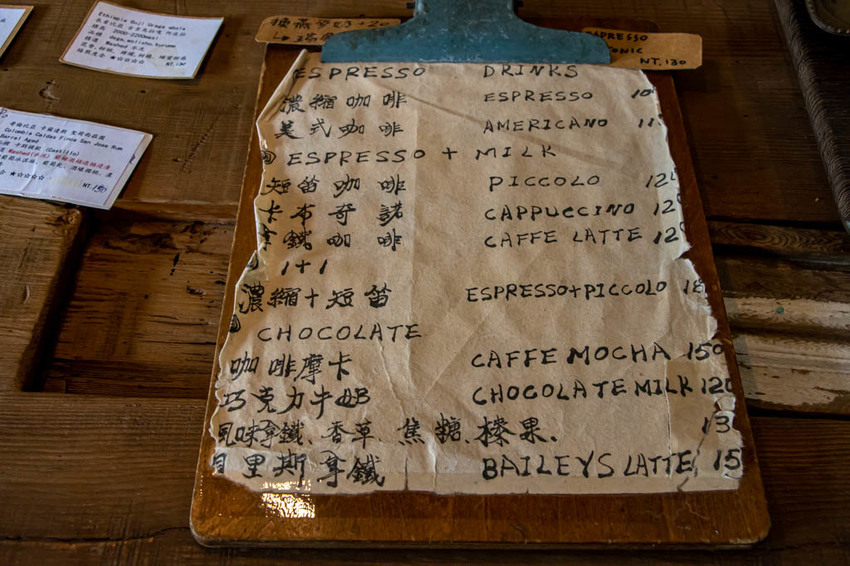 Ethiopia Guji Uraga whole
2000-2200masl
NT. 130
Colombia Caldas Finca San Jose Rum
Barrel Aged
(Castillo)
NT. 150
ESPRESSO
NT. 130
ESPRESSO DRINKS
濃縮咖啡 ESPRESSO
美式咖啡 AMERICANO
ESPRESSO + MILK
短笛咖啡 PICCOLO 120
卡布奇諾 CAPPUCCINO 12
拿鐵咖啡 CAFFE LATTE 12
1+1
濃縮+短笛 ESPRESSO+PICCOLO 18
CHOCOLATE
咖啡摩卡 CAFFE MOCHA 150
巧克力牛奶 CHOCOLATE MILK 120
風味拿鐵、香草、焦糖、榛果. 13
貝里斯拿鐵 BAILEYS LATTE 15